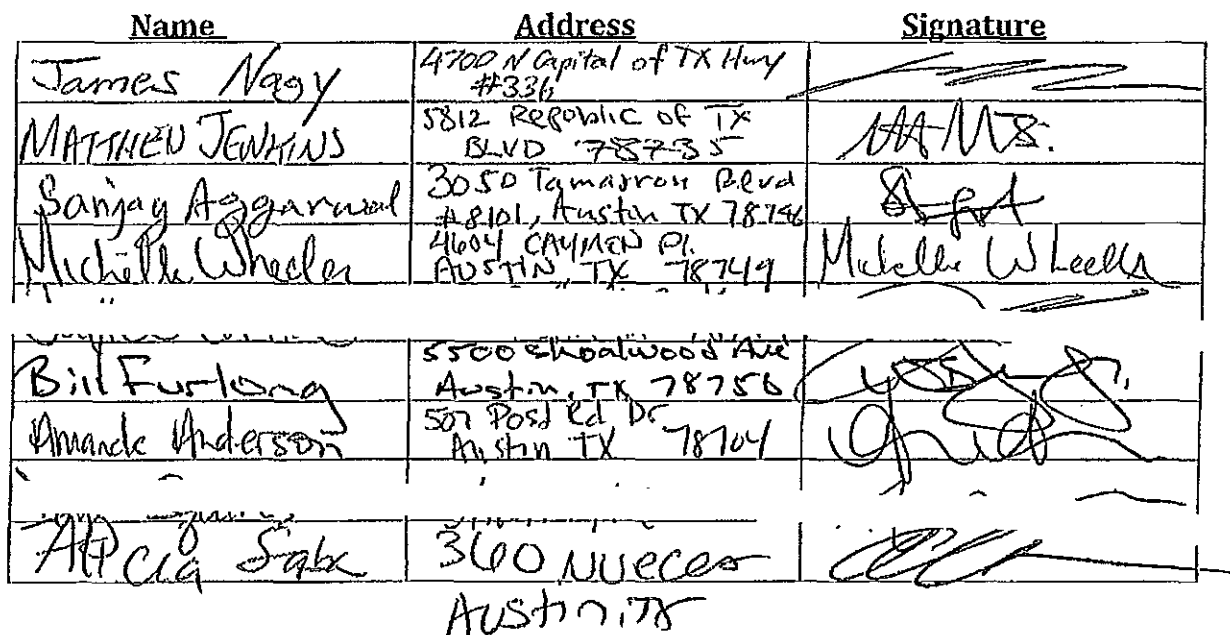 Name Address Signature
James Nagy 4700 N Capital of TX Hwy
#336
MATTHEW JENKINS 5812 Republic of TX
BLVD 78735
Sanjay Aggarwal 3050 Tamarron Blvd
#8101, Austin TX 78746
Michelle Wheeler 4604 CAYMEN Pl. Michelle Wheeler
AUSTIN, TX 78749
Bill Furlong 5500 Shoalwood Ave
Austin, TX 78756
Amanda Anderson 507 Post Rd Dr
Austin TX 78704
360 Nueces
Austin, TX